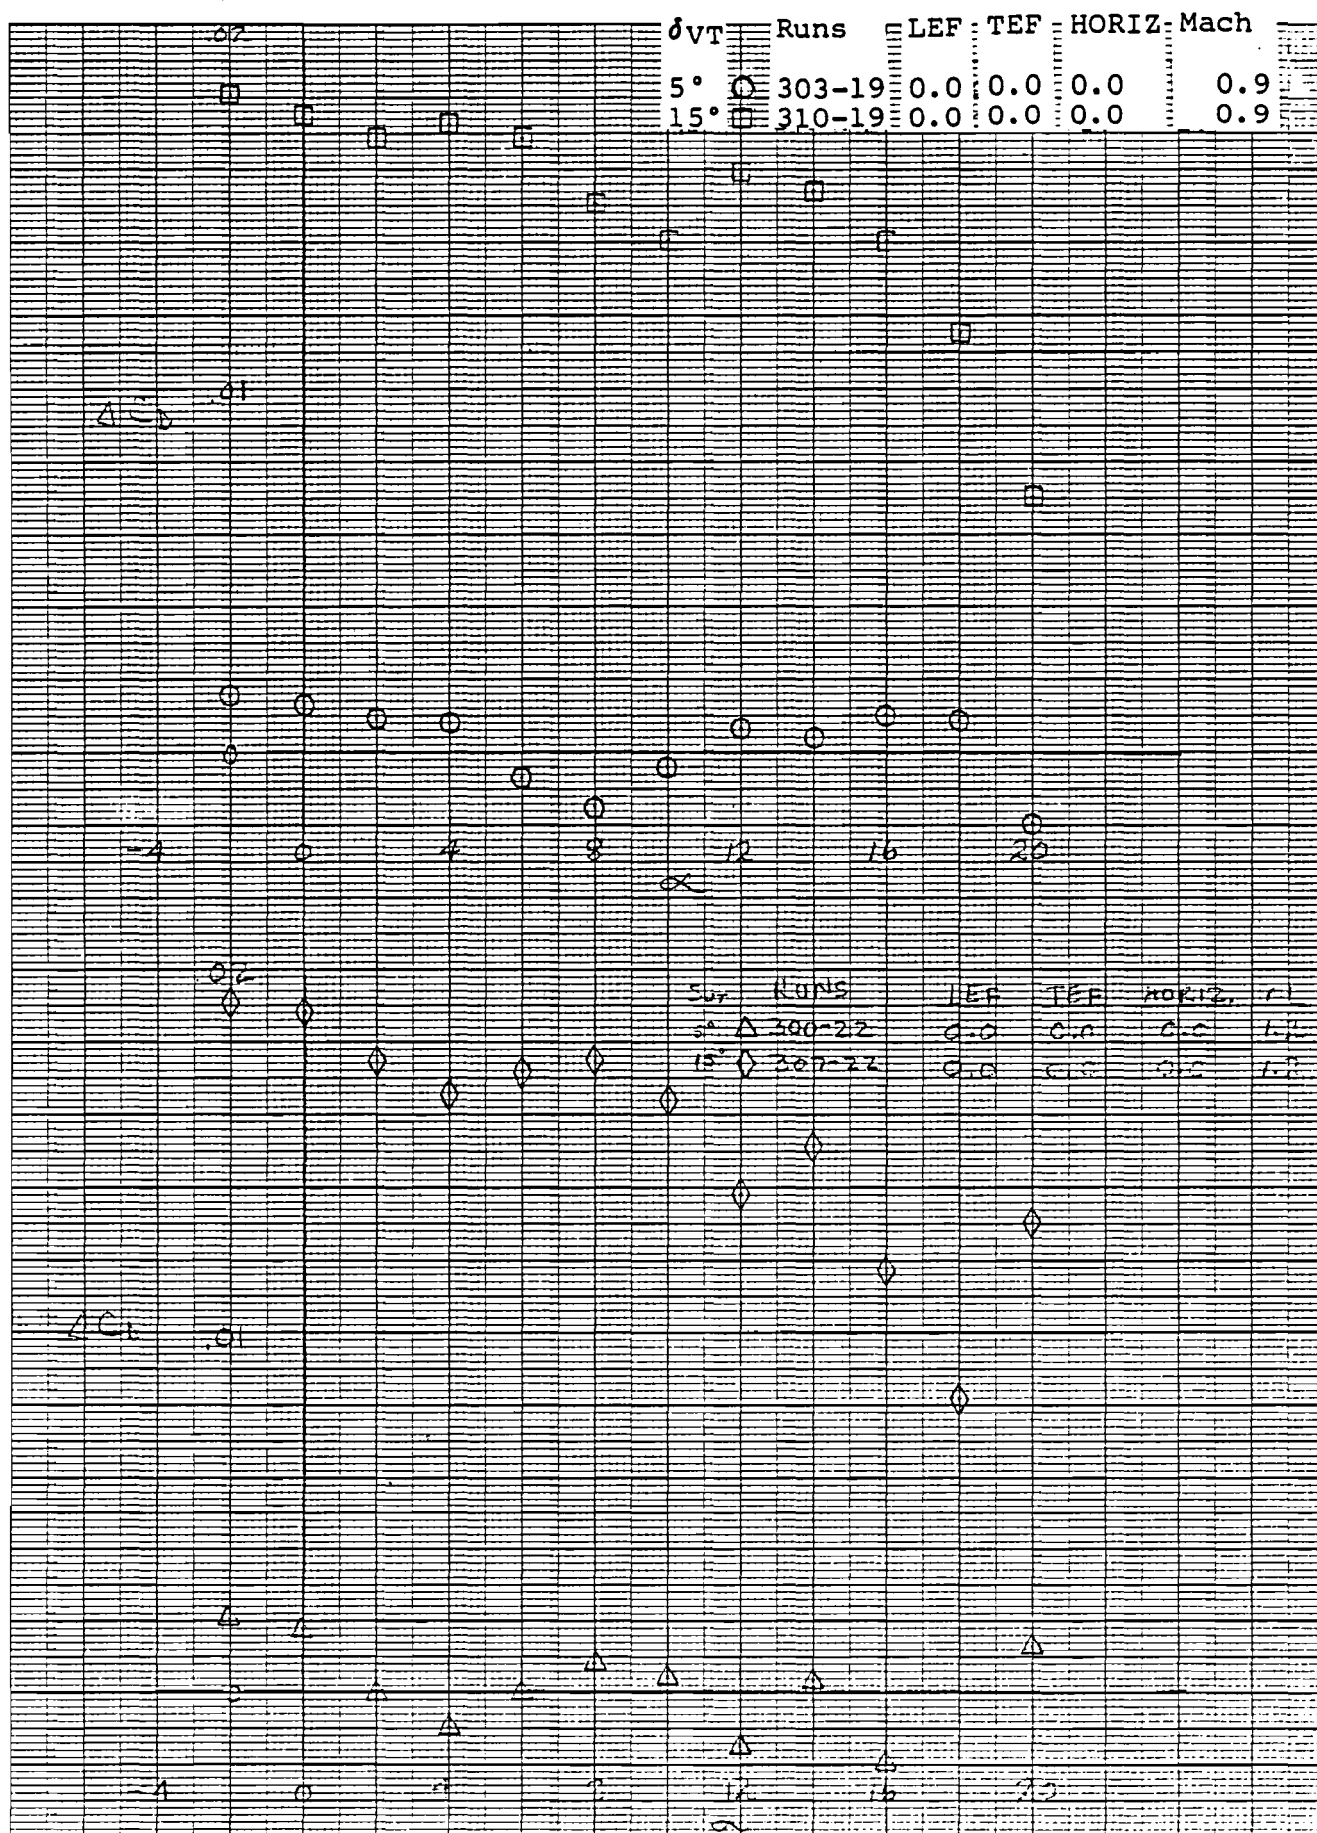 δVT Runs LEF TEF HORIZ Mach
5° 303-19 0.0 0.0 0.0 0.9
15° 310-19 0.0 0.0 0.0 0.9
.02
.01
ΔCD
0
-4 0 4 8 12 16 20
α
.02
RUNS LEF TEF HORIZ.
5° 300-22 0.0 0.0 0.0
15° 307-22 0.0 0.0 0.0
ΔC
.01
-4 0 12 16 20